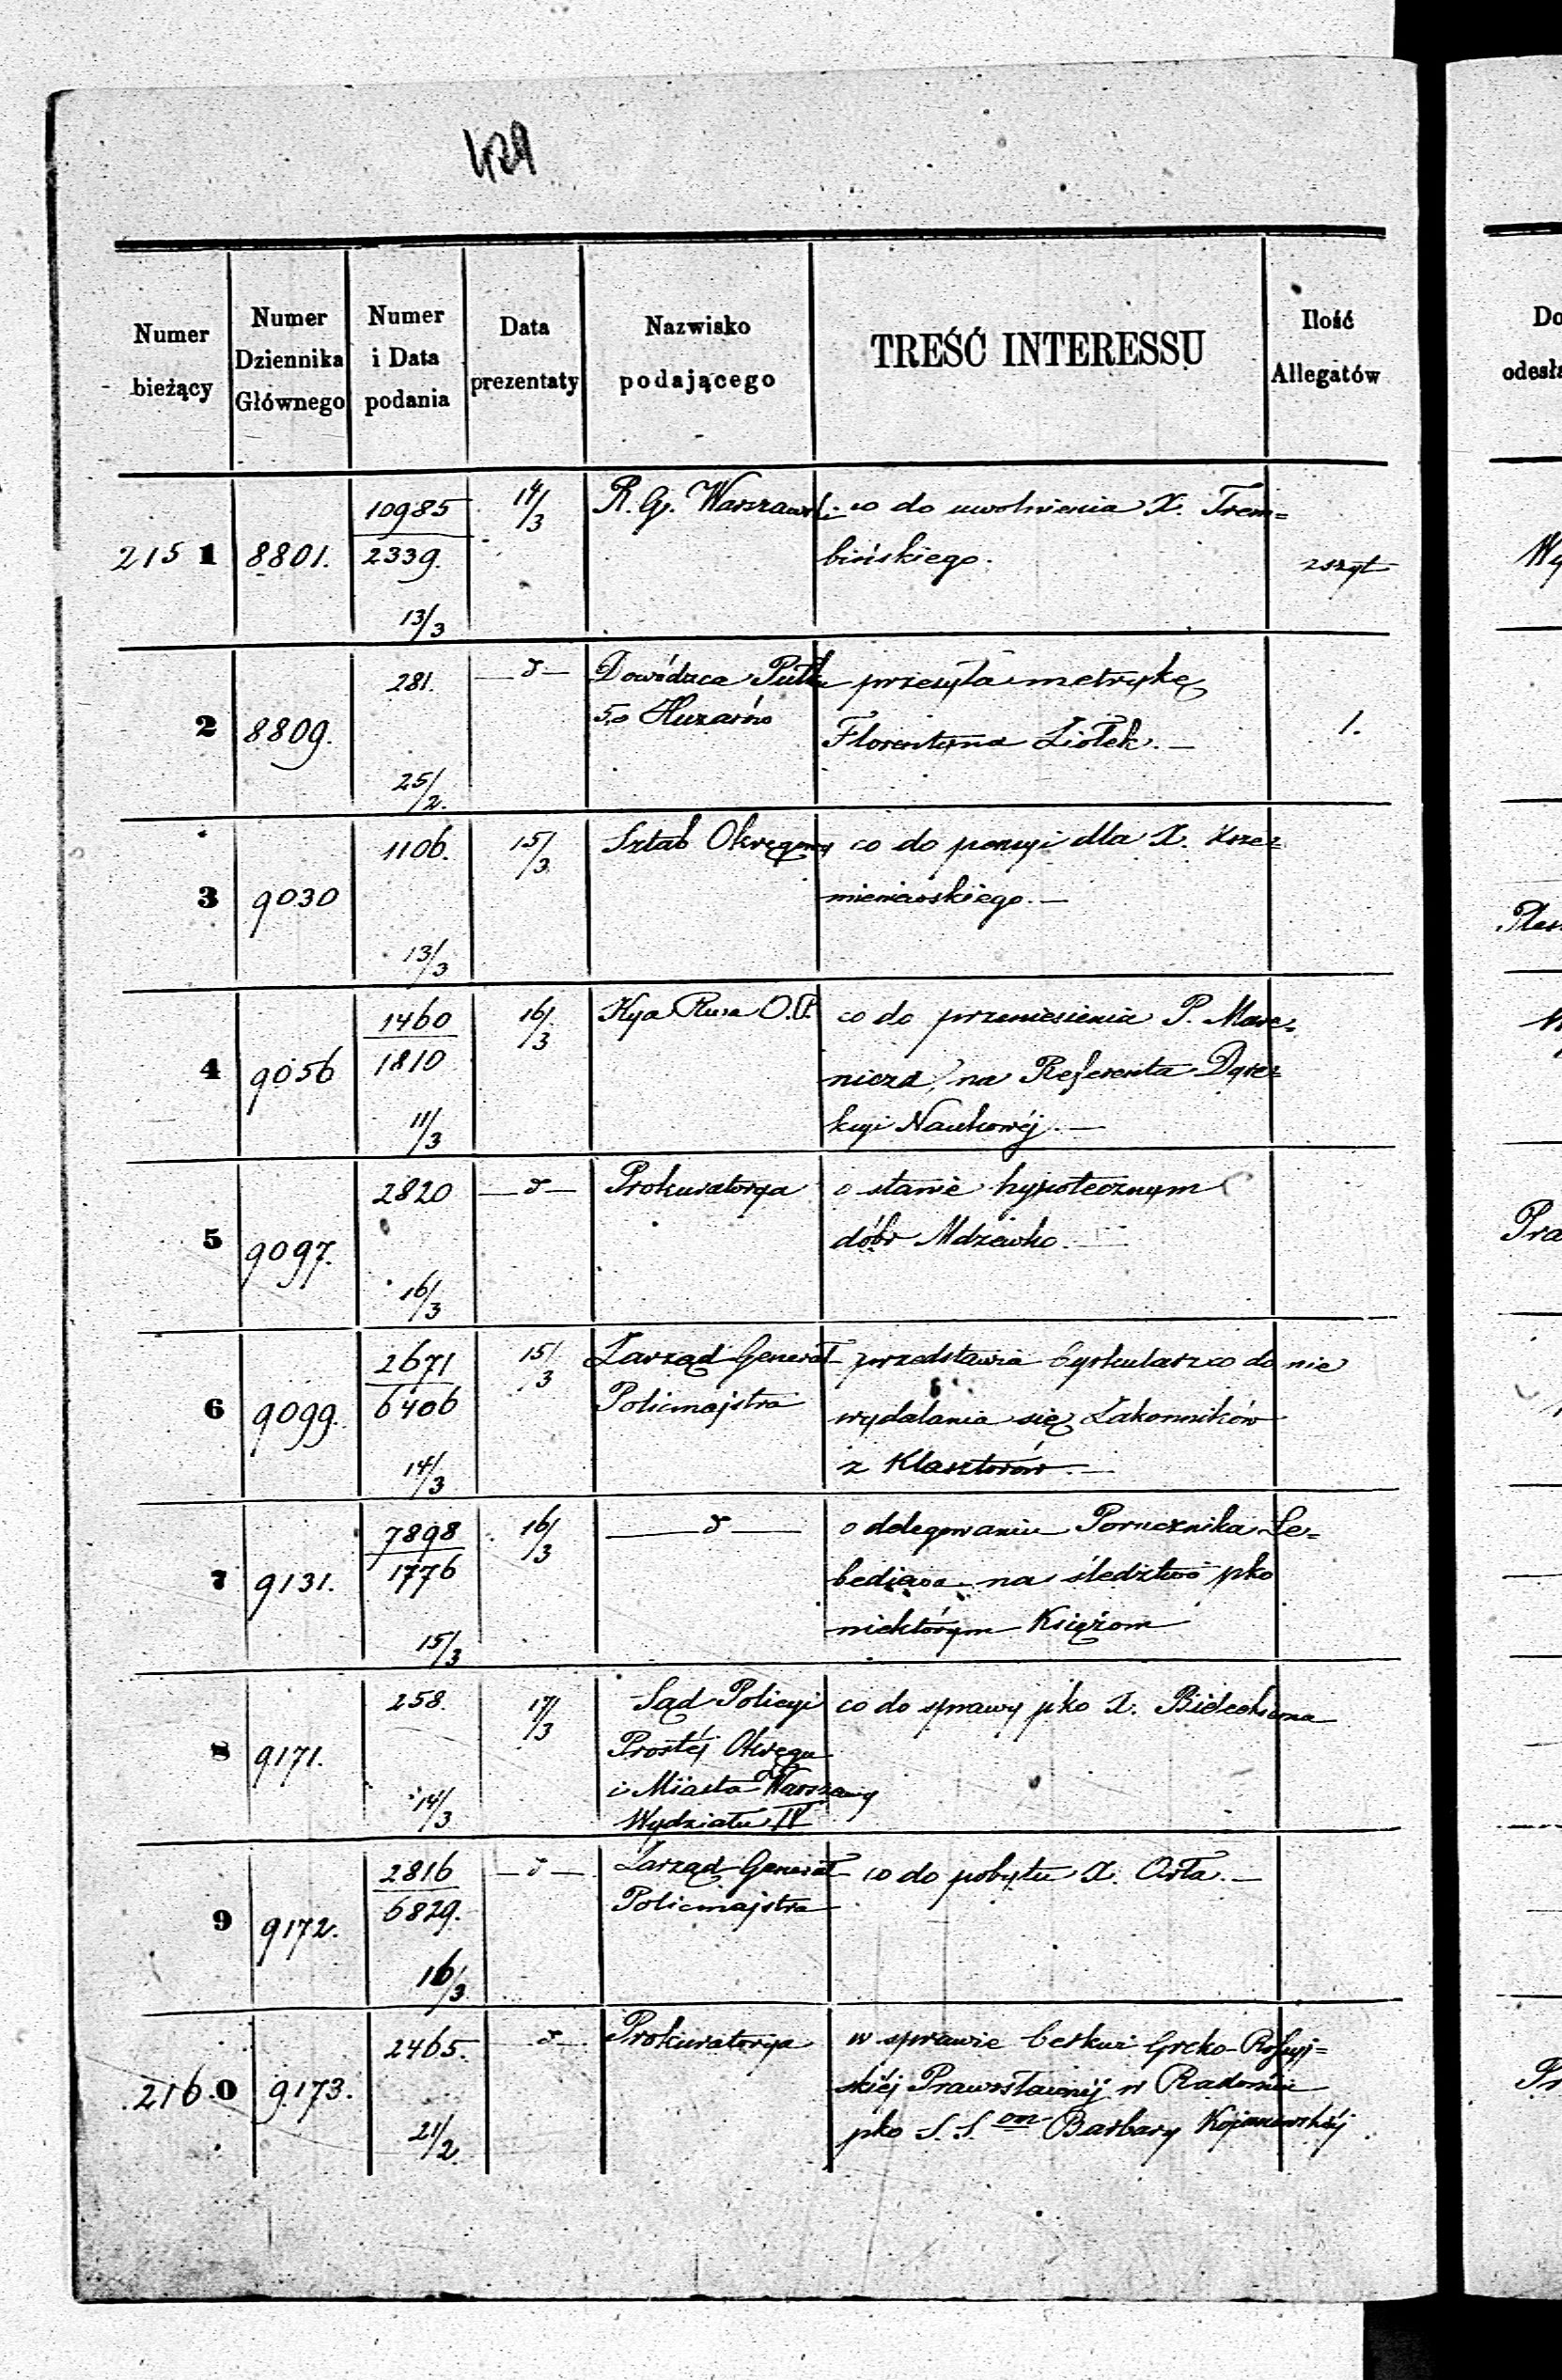 429
Numer bieżący
Numer Dziennika Głównego
Numer i Data podania
Data prezentaty
Nazwisko podającego
TREŚĆ INTERESSU
Ilość Allegatów
2151 8801. 10985/2339. 13/3 14/3 R. G. Warszawski co do uwolnienia X. Trem=
bińskiego. zszyt
2 8809. 281. 25/2. —d— Dowódzca Pułku przesyła metrykę
5o Huzarów Florentyna Ziołek.— 1.
3 9030 1106. 13/3 15/3 Sztab Okręgowy co do pensyi dla X. Krze=
mieniewskiego.—
4 9056 1460/1810 11/3 16/3 Kya Rzą O.P. co do przeniesienia P. Marc=
nicza, na Referenta Dyre=
kcyi Naukowéj.—
5 9097. 2820 16/3 —d— Prokuratorya o stanie hypotecznym
dóbr Mdzewko.
6 9099. 2671/6406 14/3 15/3 Zarząd Generał przedstawia cyrkularz co do nie
Policmajstra wydalania się Zakonników
z Klasztorów.—
7 9131. 7898/1776 15/3 16/3 —d— o delegowaniu Porucznika Le=
bediewa na śledztwo pko
niektórym Księżom
8 9171. 258. 14/3 17/3 Sąd Policyi co do sprawy pko X.
Prostéj Okręgu
i Miasta Warszawy
Wydziału IV
9 9172. 2816/6829. 16/3 —d— Zarząd Generał co do pobytu X. Orła.—
Policmajstra
2160 9173. 2465. 21/2. —d— Prokuratorya w sprawie Cerkwi Greko-Rossyj=
skiéj Prawosławnéj w Radomiu
pko S. S. on Barbary Kojanowskiéj
Do
odesła
Wy
Pra